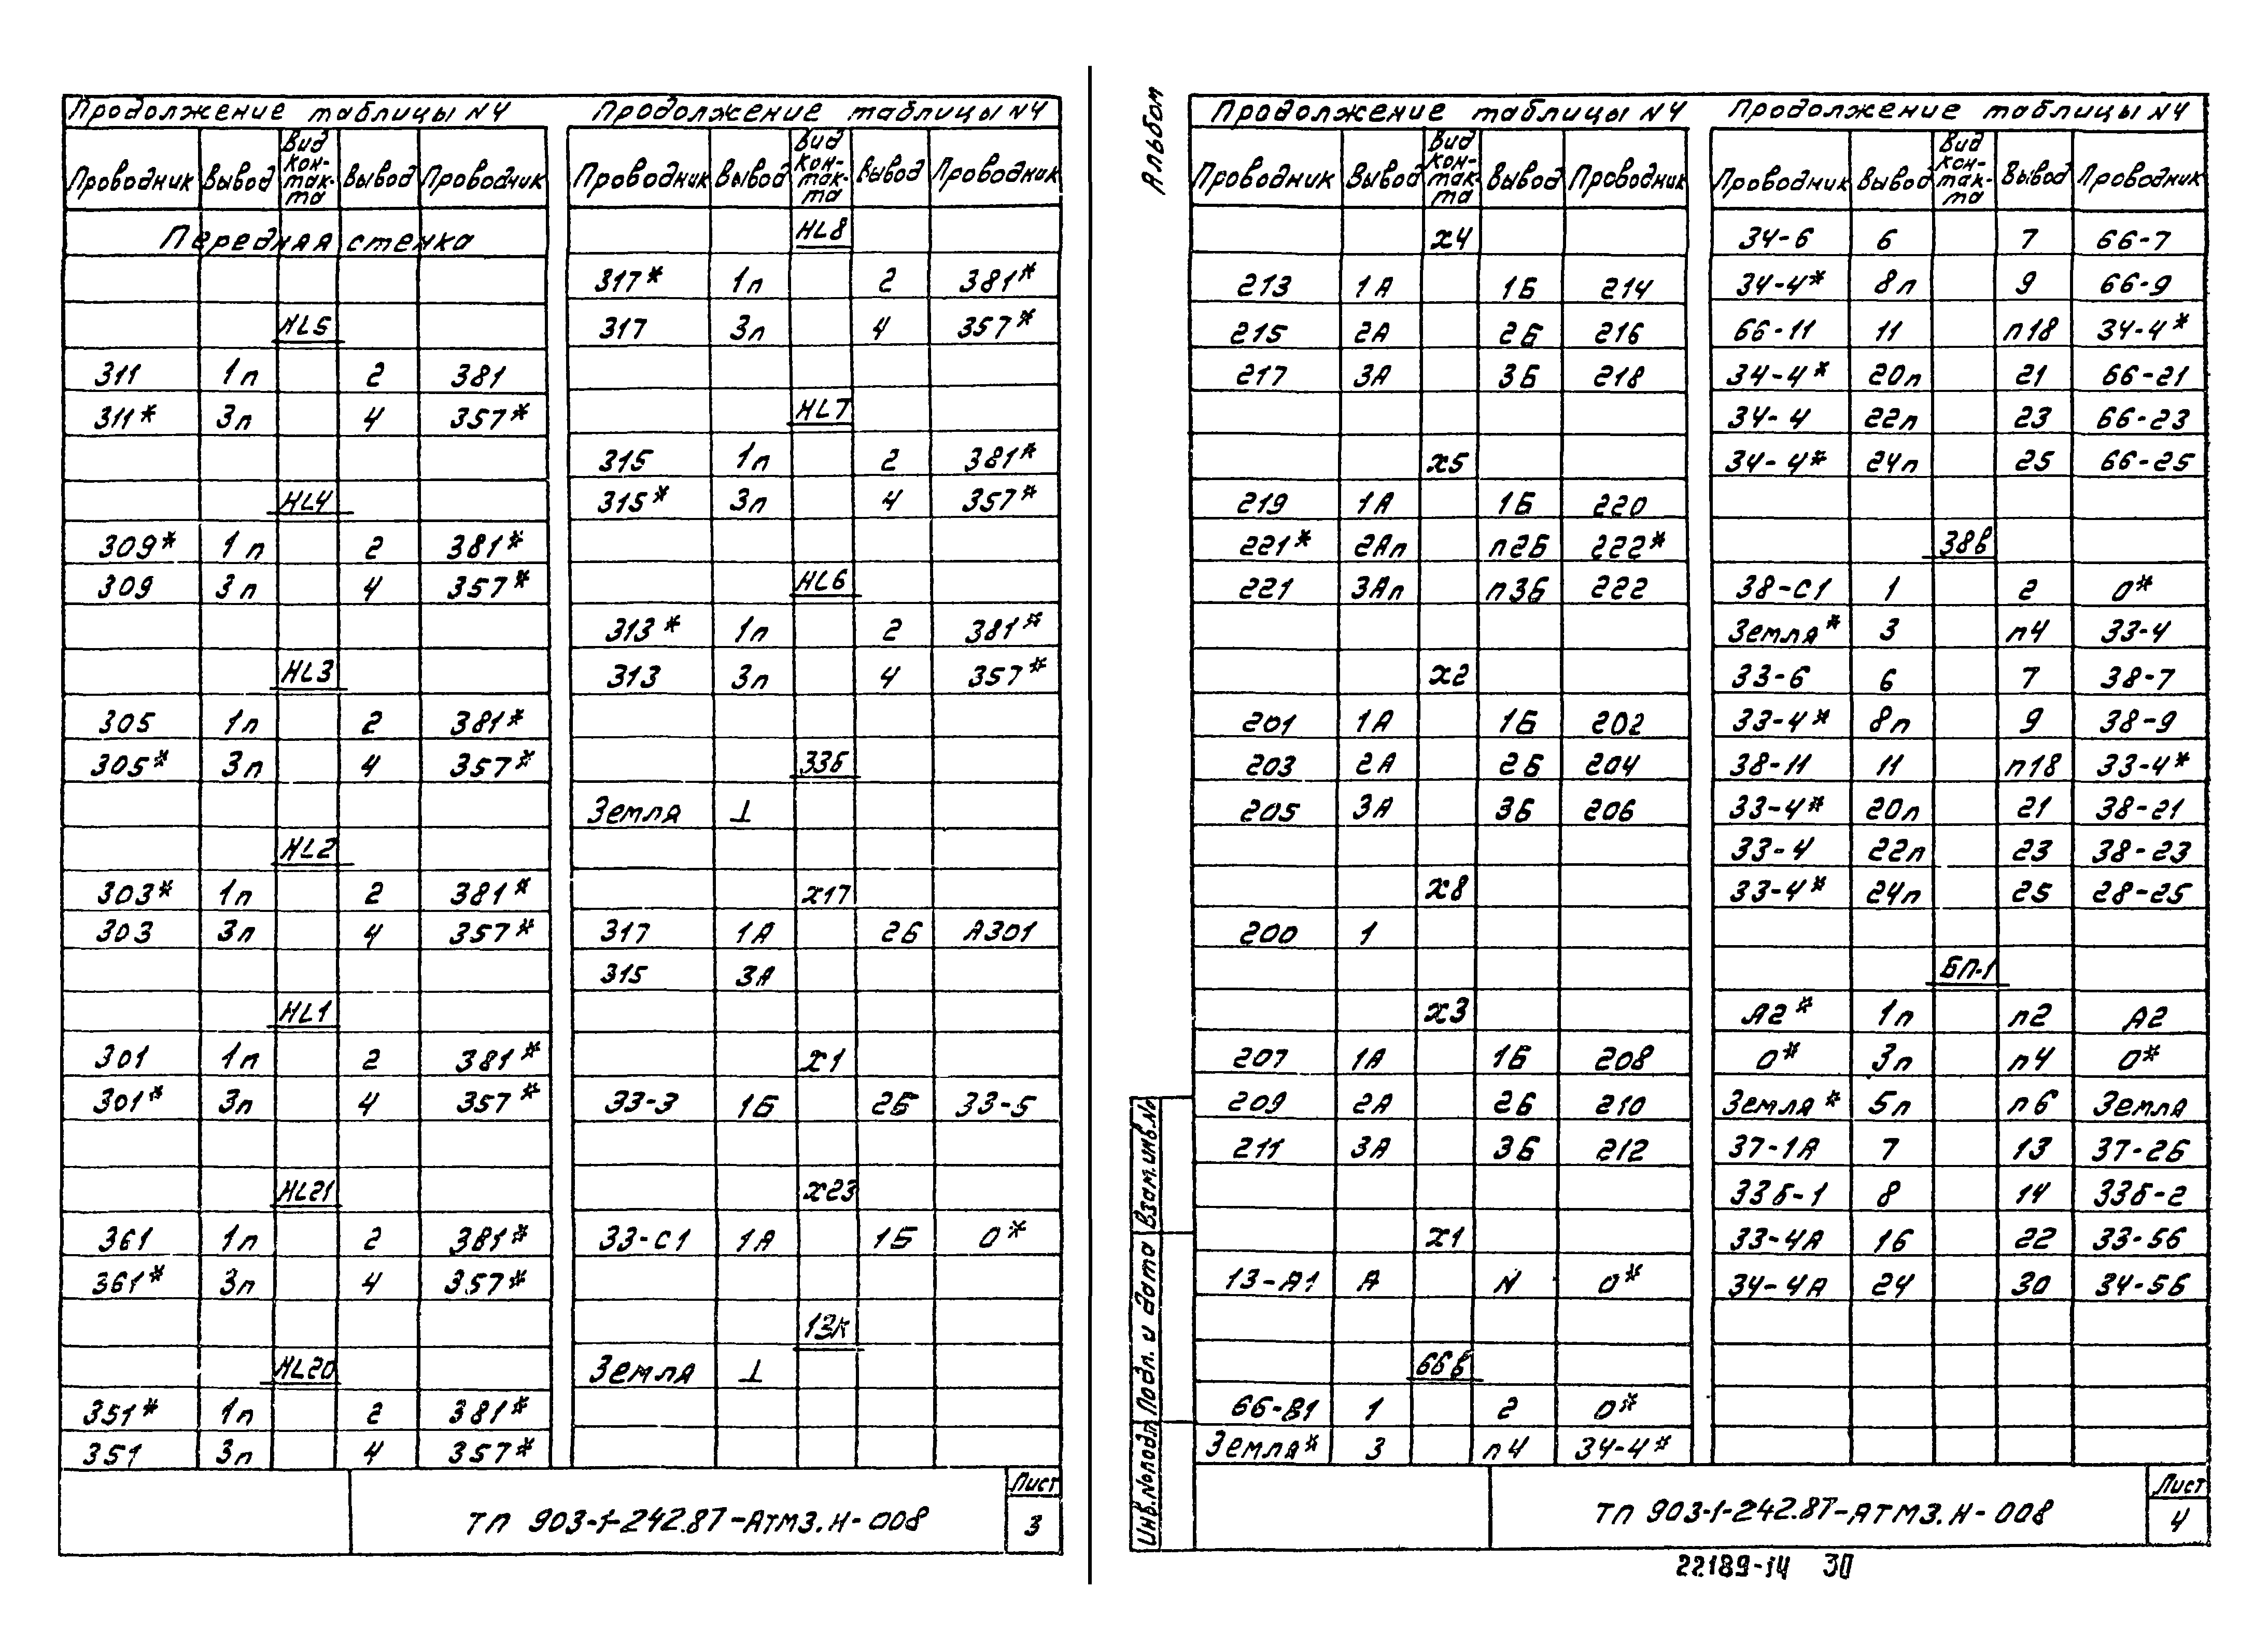 Продолжение таблицы N4
Проводник Вывод Вид кон-так-та Вывод Проводник
Передняя стенка
HL5
311 1п 2 381
311* 3п 4 357*
HL4
309* 1п 2 381*
309 3п 4 357*
HL3
305 1п 2 381*
305* 3п 4 357*
HL2
303* 1п 2 381*
303 3п 4 357*
HL1
301 1п 2 381*
301* 3п 4 357*
HL21
361 1п 2 381*
361* 3п 4 357*
HL20
351* 1п 2 381*
351 3п 4 357*
Продолжение таблицы N4
Проводник Вывод Вид кон-так-та Вывод Проводник
HL8
317* 1п 2 381*
317 3п 4 357*
HL7
315 1п 2 381*
315* 3п 4 357*
HL6
313* 1п 2 381*
313 3п 4 357*
33б
Земля ⊥
х17
317 1А 2Б А301
315 3А
х1
33-3 1Б 2Б 33-5
х23
33-С1 1А 1Б 0*
13к
Земля ⊥
ТП 903-1-242.87-АТМ3.Н-008
Лист
3
Альбом
Продолжение таблицы N4
Проводник Вывод Вид кон-так-та Вывод Проводник
х4
213 1А 1Б 214
215 2А 2Б 216
217 3А 3Б 218
х5
219 1А 1Б 220
221* 2Ап п2Б 222*
221 3Ап п3Б 222
х2
201 1А 1Б 202
203 2А 2Б 204
205 3А 3Б 206
х8
200 1
х3
207 1А 1Б 208
209 2А 2Б 210
211 3А 3Б 212
х1
13-А1 А N 0*
66в
66-В1 1 2 0*
Земля* 3 п4 34-4*
Продолжение таблицы N4
Проводник Вывод Вид кон-так-та Вывод Проводник
34-6 6 7 66-7
34-4* 8п 9 66-9
66-11 11 п18 34-4*
34-4* 20п 21 66-21
34-4 22п 23 66-23
34-4* 24п 25 66-25
38в
38-С1 1 2 0*
Земля* 3 п4 33-4
33-6 6 7 38-7
33-4* 8п 9 38-9
38-11 11 п18 33-4*
33-4* 20п 21 38-21
33-4 22п 23 38-23
33-4* 24п 25 28-25
БП-1
А2* 1п п2 А2
0* 3п п4 0*
Земля* 5п п6 Земля
37-1А 7 13 37-2Б
33б-1 8 14 33б-2
33-4А 16 22 33-5б
34-4А 24 30 34-5б
Инв.№подл. Подл. и дата Взам.инв.№
ТП 903-1-242.87-АТМ3.Н-008
Лист
4
22189-14 30